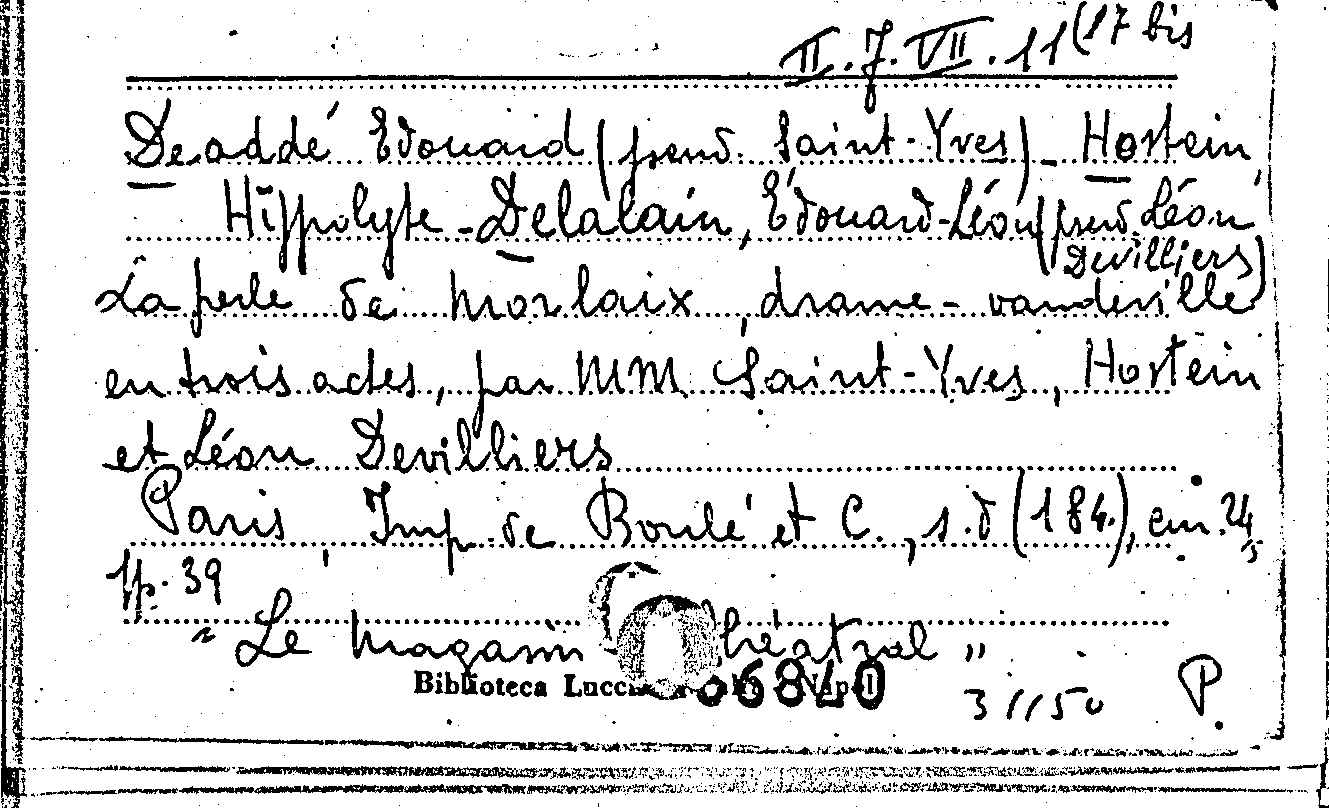 II.J.VII.11(17 bis
Deaddé Edouard (pseud. Saint-Yves) - Hostein,
Hippolyte - Delalain, Édouard-Léon (pseud. Léon
Devilliers)
La perle de Morlaix, drame-vaudeville
en trois actes, par MM Saint-Yves, Hostein
et Léon Devilliers
Paris, Imp. de Boulé et C., s.d (184.), cm. 24,5
pp. 39
"Le magasin théatral"
Biblioteca
6840
P.